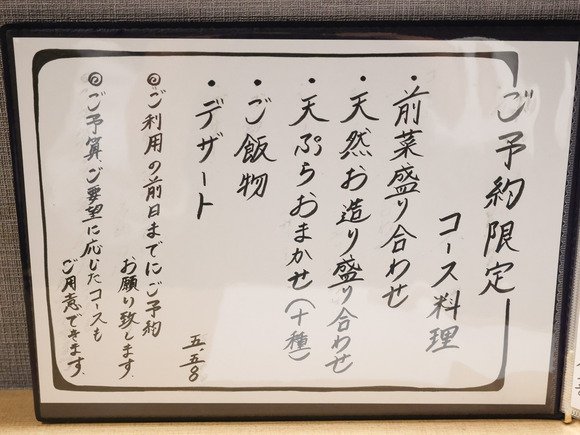 ご予約限定
コース料理
・前菜盛り合わせ
・天然お造り盛り合わせ
・天ぷらおまかせ(十種)
・ご飯物
・デザート
五.五〇
◎ご利用の前日までにご予約
お願い致します.
◎ご予算、ご要望に応じたコースも
ご用意できます.